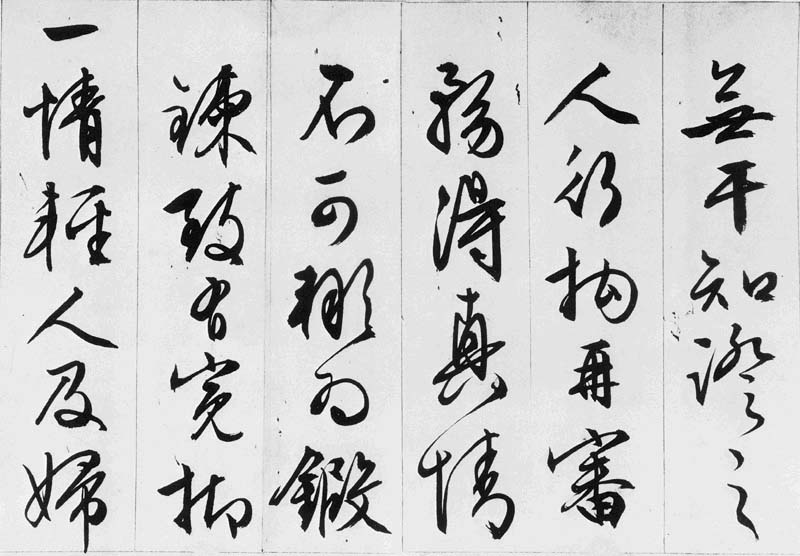 無干知證之
人行拘再審
務得真情
不可輒為鍛
鍊致有冤抑
一情輕人及婦